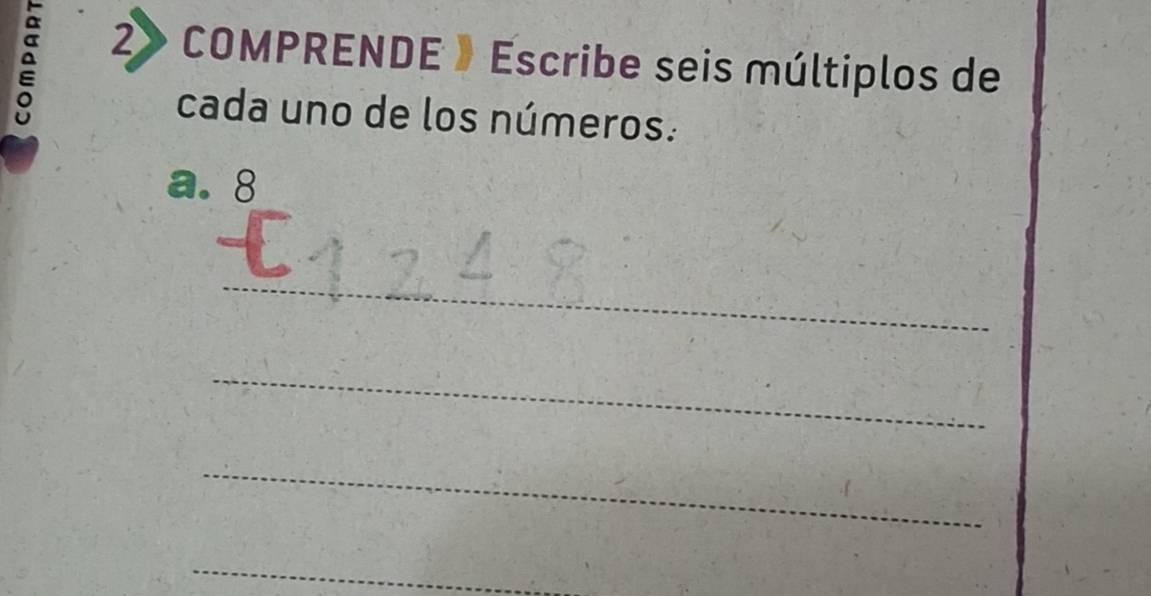 COMPART
2 COMPRENDE Escribe seis múltiplos de
cada uno de los números.
a. 8
1 2 4 8